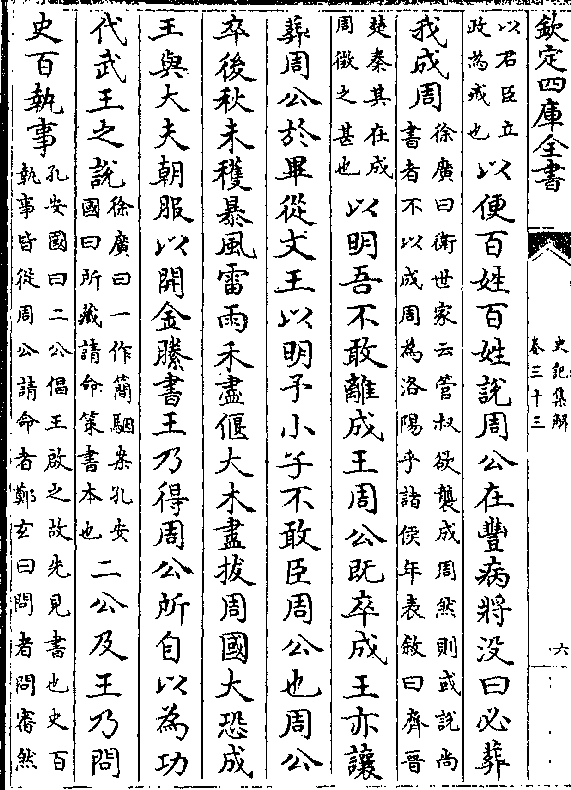 欽定四庫全書
史記集解
卷三十三
六
以君臣立
政為戒也
以便百姓百姓說周公在豐病將没曰必葬
我成周
徐廣曰衛世家云管叔欲襲成周然則或說尚
書者不以成周為洛陽乎諸侯年表敘曰齊晉
楚秦其在成
周微之甚也
以明吾不敢離成王周公既卒成王亦讓
葬周公於畢從文王以明予小子不敢臣周公也周公
卒後秋未穫暴風雷雨禾盡偃大木盡拔周國大恐成
王與大夫朝服以開金縢書王乃得周公所自以為功
代武王之說
徐廣曰一作簡駰案孔安
國曰所藏請命策書本也
二公及王乃問
史百執事
孔安國曰二公倡王啟之故先見書也史百
執事皆從周公請命者鄭玄曰問者問審然